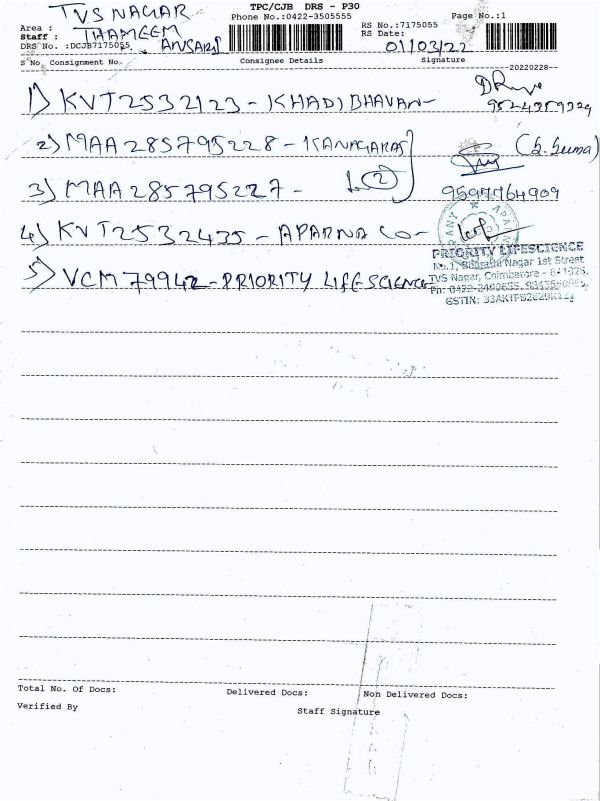 TPC/CJB DRS - P30
Area : TVS NAGAR
Phone No.:0422-3505555
Page No.:1
Staff : THAMEEM ANSARI
RS No.:7175055
RS Date: 01/03/22
DRS No. :DCJB7175055
S No. Consignment No.
Consignee Details
Signature
20220228
1) KVT2532123 - KHADI BHAVAN-
2) MAA 285795228 - KANAGARAJ
(b. Suma)
3) MAA 285795227 -
2
9597764909
4) KVT2532435 - APARNA CO-
5) VCM 79942 - PRIORITY LIFE SCIENCE
PRIORITY LIFESCIENCE
No.1, Nagar 1st Street
TVS Nagar, Coimbatore - 641025.
Ph: 0422-
GSTIN:
Total No. Of Docs:
Delivered Docs:
Non Delivered Docs:
Verified By
Staff Signature